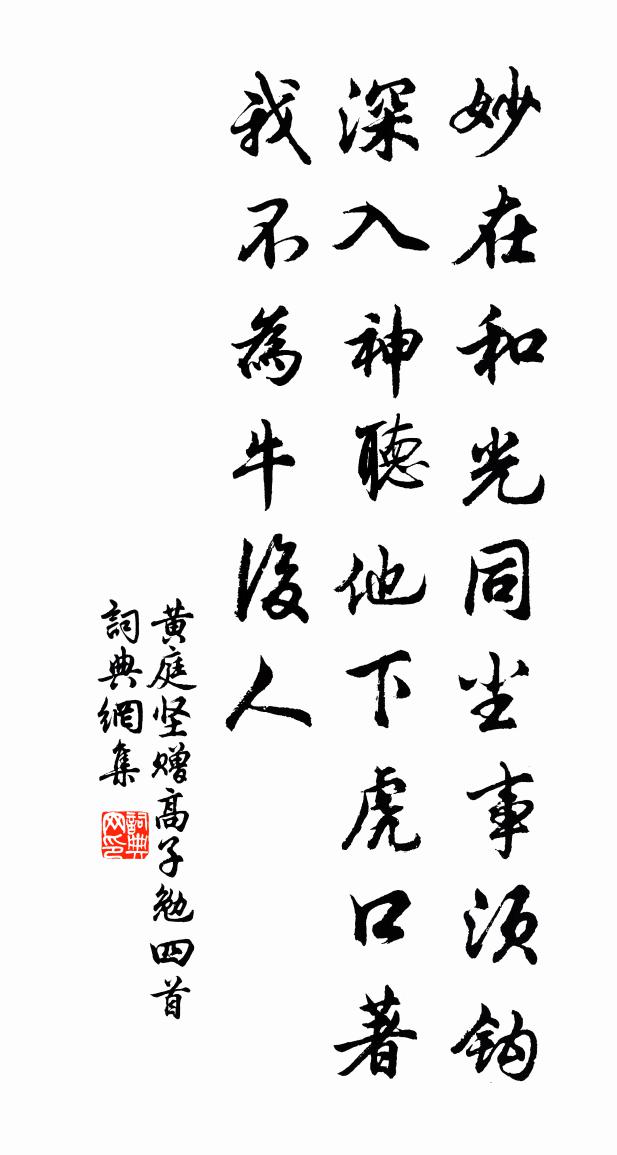 妙在和光同尘事须钩
深入神聽他下虎口著
我不為牛後人
黄庭坚赠高子勉四首
詞典網集
詞典网印